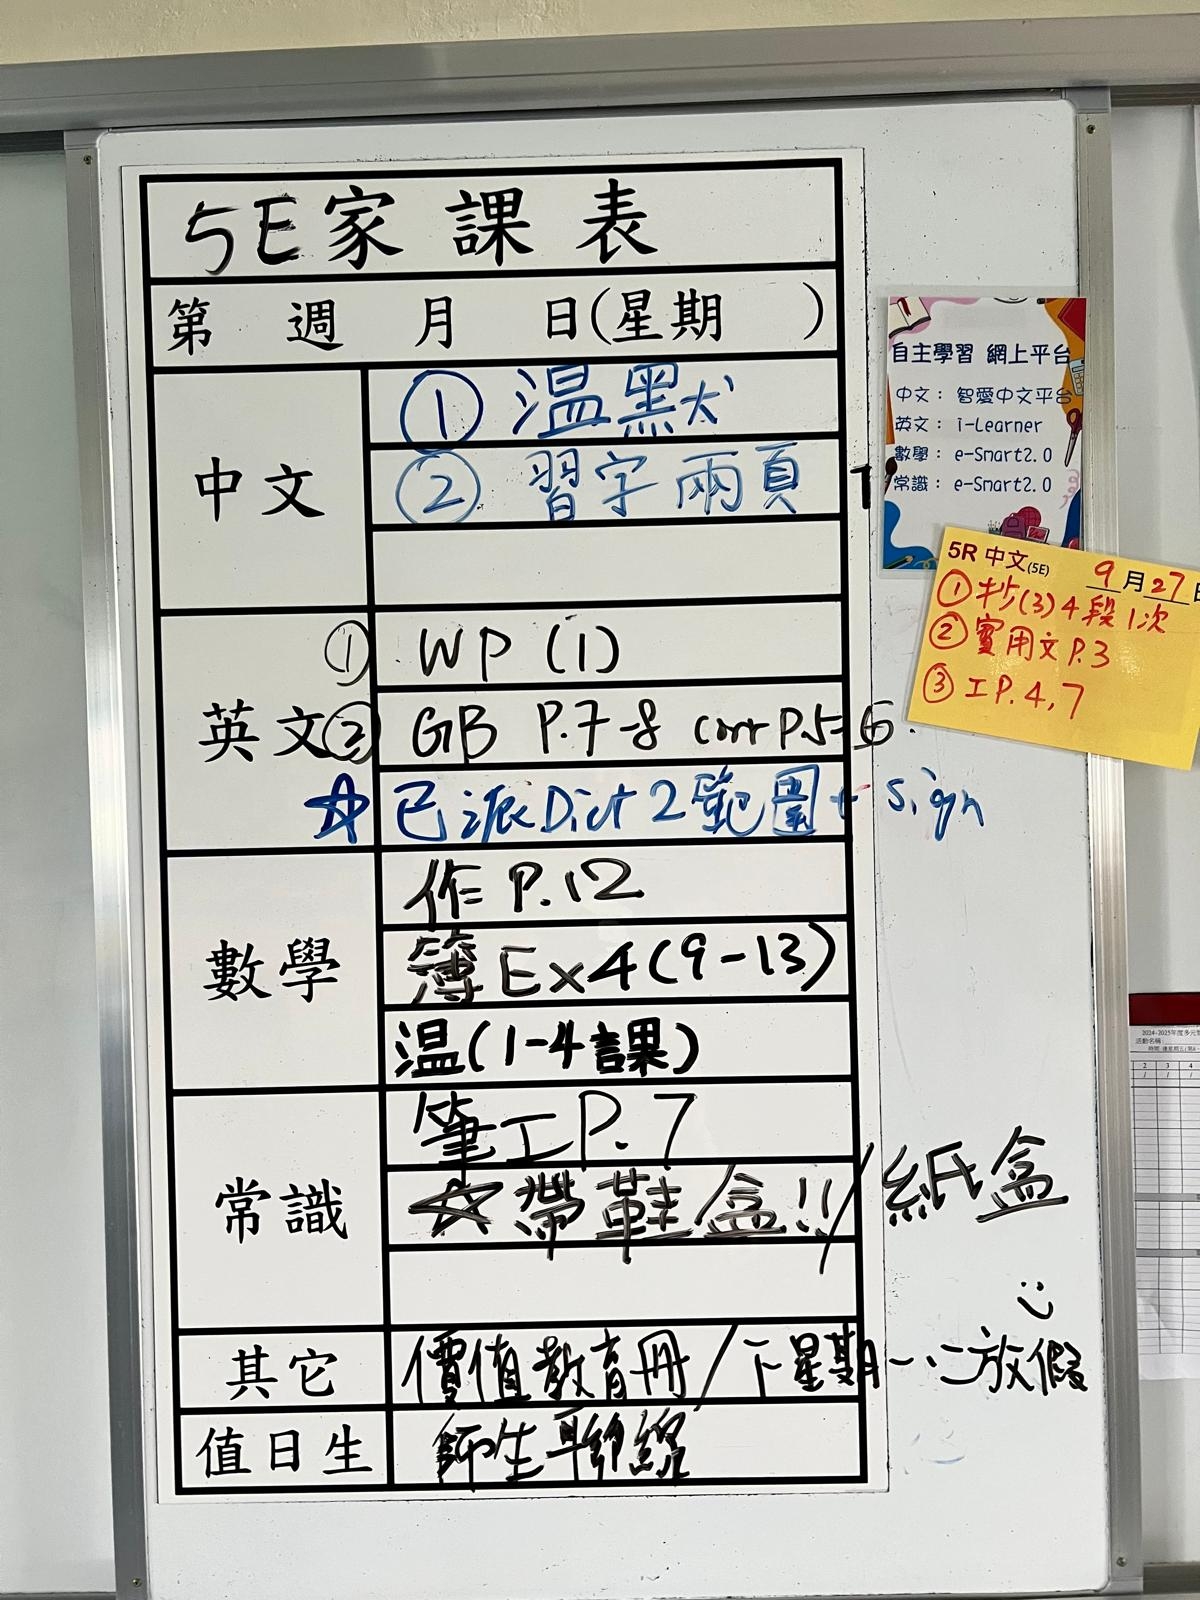 5E家課表
第 週 月 日(星期 )
中文
① 温默
② 習字兩頁
英文
① WP (1)
② GB P.7-8 corr P.5-6
☆ 已派Dict 2範圍 + sign
數學
作 P.12
簿 Ex4(9-13)
温(1-4課)
常識
筆工P.7
☆帶鞋盒!!/紙盒
其它
價值教育冊/下星期一、二放假
值日生
師生聯綜
自主學習 網上平台
中文：智愛中文平台
英文：i-Learner
數學：e-Smart2.0
常識：e-Smart2.0
5R 中文(5E) 9月27日
① 抄(3)4段1次
② 實用文 P.3
③ 工P.4,7
2024-2025年度多元
活動名稱:
2 3 4